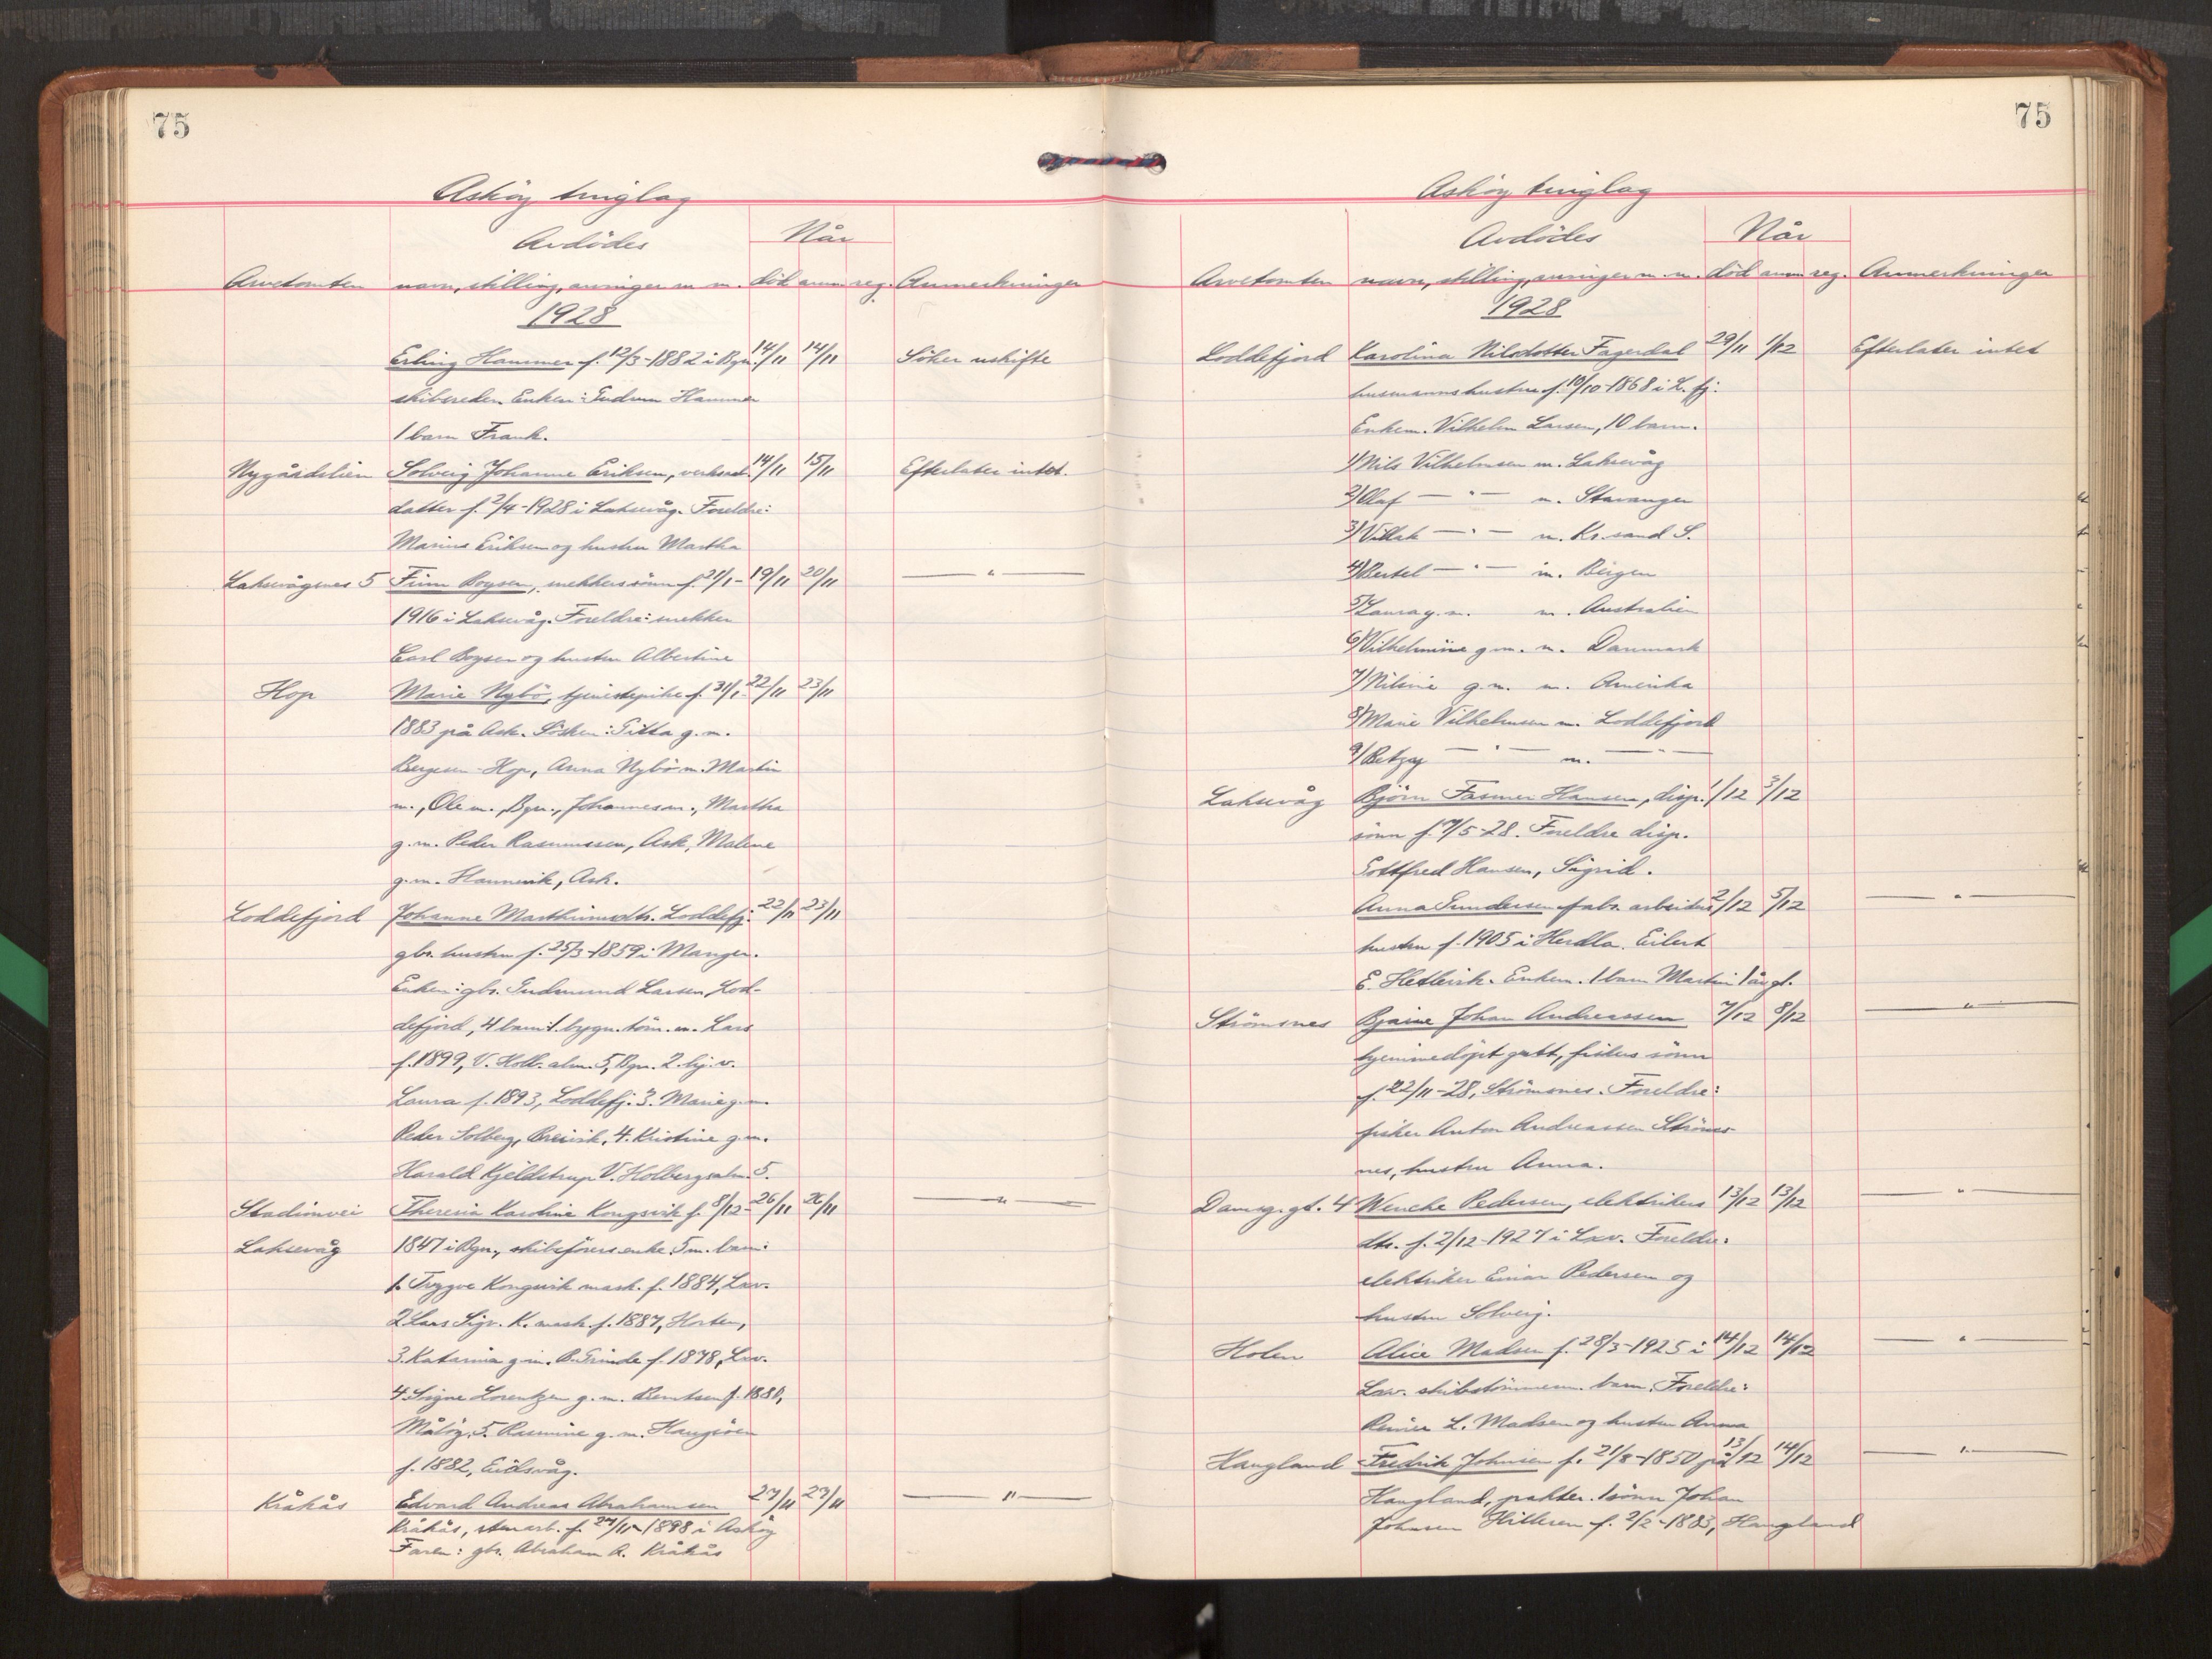 75
Askøy tinglag
Avdødes Når
Arvetomten navn, stilling, arvinger m. m. död anm. reg. Anmerkninger
1928
Erling Hammer f. 12/3-1882 i Bgn. 14/11 14/11 Söker uskifte
skibsreder. Enken: Gudrun Hammer
1 barn Frank.
Nygårdslien Solveig Johanne Eriksen, verksarb. 14/11 15/11 Efterlater intet.
datter f. 2/4-1928 i Laksevåg. Foreldre:
Marius Eriksen og hustru Martha
Laksevågsnes 5 Finn Boysen, snekkers sönn f. 21/1- 19/11 20/11 — " —
1916 i Laksevåg. Foreldre: snekker
Carl Boysen og hustru Albertine
Hop Marie Nybö, tjenestepike f. 31/1- 22/11 23/11
1883 på Ask. Søsken: Gitta g. m.
Bergesen-Hop, Anna Nybö m. Martin
m., Ole m., Bgn., Johannes m., Martha
g. m. Peder Rasmussen, Ask, Malene
g. m. Hannevik, Ask.
Loddefjord Johanne Marthinusdtr. Loddefj. 22/11 23/11
gbr. hustru f. 25/3-1859 i Manger.
Enkem: gbr. Gudmund Larsen, Lod-
defjord, 4 barn: 1. bygn. töm. m. Lars
f. 1899, V. Holb. alm. 5, Bgn. 2. hj. v.
Laura f. 1893, Loddefj. 3. Marie g. m.
Peder Solberg, Breivik, 4. Kristine g. m.
Harald Kjeldstrup V. Holbergsalm. 5.
Stadionvei Theresia Karoline Kongsvik f. 8/12- 26/11 26/11 — " —
Laksevåg 1847 i Bgn., skibsförers enke. 5 m. barn:
1. Trygve Kongsvik mask. f. 1884, Lxv.
2 Lars Sigv. K. mask. f. 1887, Horten,
3. Katarina g. m. B. Grinde f. 1878, Lxv.
4. Signe Lorentzen g. m. Berntsen f. 1880,
Måløy, 5. Rasmine g. m. Haugsöen
f. 1882, Eidsvåg.
Kråkås Edvard Andreas Abrahamsen 27/11 29/11 — " —
Kråkås, stenarb. f. 27/11-1898 i Askøy
Faren: gbr. Abraham A. Kråkås
75
Askøy tinglag
Avdödes Når
Arvetomten navn, stilling, arvinger m. m. död anm reg. Anmerkninger
1928
Loddefjord Karolina Nilsdotter Fagerdal 29/11 1/12 Efterlater intet
husmannshustru f. 10/10-1868 i L. fj.
Enkem. Vilhelm Larsen, 10 barn.
1) Nils Vilhelmsen m. Laksevåg
2) Olaf — " — m. Stavanger
3) — " — m. Kr.sand S.
4) Bertel — " — m. Bergen
5) Laura g. m. m. Australien
6) Vilhelmine g. m. m. Danmark
7) Nilsine g. m. m. Amerika
8) Marie Vilhelmsen m. Loddefjord
9) Betzy — " — m. — " —
Laksevåg Björn Fasmer Hansen, disp. 1/12 3/12
sönn f. 7/5-28. Foreldre disp.
Gottfred Hansen, Sigrid.
Anna Gundersen fabr. arbeiders 2/12 5/12 — " —
hustru f. 1905 i Herdla. Eilert
E. Hetlevik. Enkem. 1 barn Martin 1 år gl.
Strömsnes Bjarne Johan Andreassen 7/12 8/12 — " —
hjemmedöpt gutt, fiskers sönn
f. 22/11-28, Strömsnes. Foreldre:
fisker Anton Andreassen Ströms-
nes, hustru Anna.
Damsg. gt. 4 Wenche Pedersen, elektrikers 13/12 13/12 — " —
dtr. f. 2/12-1927 i Lxv. Foreldre:
elektriker Einar Pedersen og
hustru Solveig.
Holen Alice Madsen f. 28/3-1925 i 14/12 14/12 — " —
Lxv. skibstömmerm. barn. Foreldre:
Reinier L. Madsen og hustru Anna
Haugland Fredrik Johnsen f. 21/8-1850 på 13/12 14/12 — " —
Haugland, prakter. 1 sönn Johan
Johnsen Hilleren f. 2/2-1883, Haugland